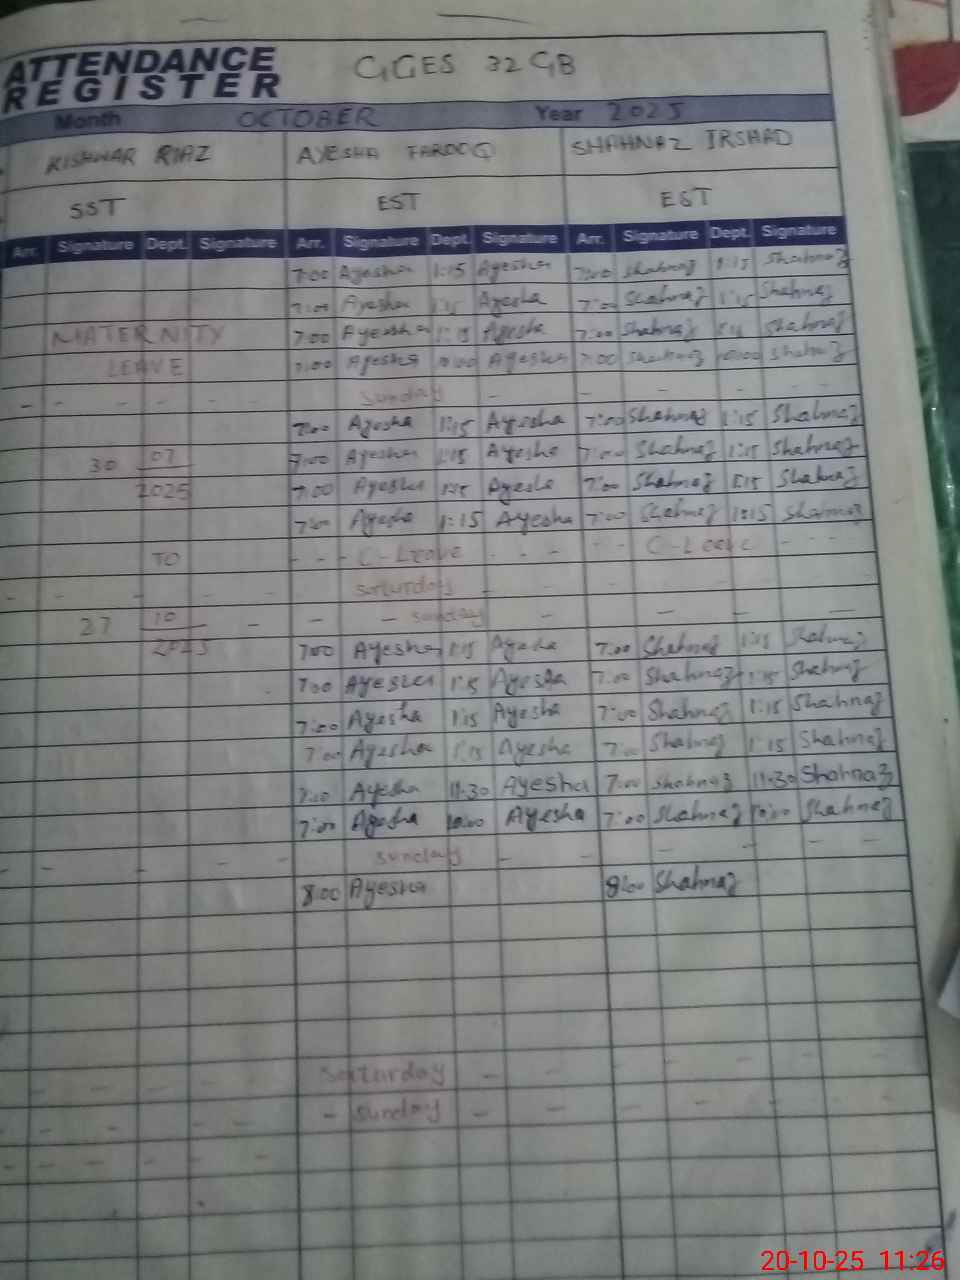 ATTENDANCE REGISTER GGES 32 GB
Month OCTOBER Year 2025
KISHWAR RIAZ AYESHA FAROOQ SHAHNAZ IRSHAD
SST EST EST
Arr. Signature Dept. Signature Arr. Signature Dept. Signature Arr. Signature Dept. Signature
7:00 Ayesha 1:15 Ayesha 7:00 Shahnaz 1:15 Shahnaz
7:00 Ayesha 1:15 Ayesha 7:00 Shahnaz 1:15 Shahnaz
MATERNITY 7:00 Ayesha 1:15 Ayesha 7:00 Shahnaz 1:15 Shahnaz
LEAVE 7:00 Ayesha 10:00 Ayesha 7:00 Shahnaz 10:00 Shahnaz
- - - - - Sunday - - - - -
7:00 Ayesha 1:15 Ayesha 7:00 Shahnaz 1:15 Shahnaz
30 07 7:00 Ayesha 1:15 Ayesha 7:00 Shahnaz 1:15 Shahnaz
2025 7:00 Ayesha 1:15 Ayesha 7:00 Shahnaz 1:15 Shahnaz
7:00 Ayesha 1:15 Ayesha 7:00 Shahnaz 1:15 Shahnaz
TO - - - C-Leave - - - - - C-Leave - - -
- - - - - Saturday - - - - -
27 10 - - - Sunday - - - -
2025 7:00 Ayesha 1:15 Ayesha 7:00 Shahnaz 1:15 Shahnaz
7:00 Ayesha 1:15 Ayesha 7:00 Shahnaz 1:15 Shahnaz
7:00 Ayesha 1:15 Ayesha 7:00 Shahnaz 1:15 Shahnaz
7:00 Ayesha 1:15 Ayesha 7:00 Shahnaz 1:15 Shahnaz
7:00 Ayesha 11:30 Ayesha 7:00 Shahnaz 11:30 Shahnaz
7:00 Ayesha 10:00 Ayesha 7:00 Shahnaz 10:00 Shahnaz
- - - - - Sunday - - - - - -
8:00 Ayesha 8:00 Shahnaz
- - - - - Saturday - - - - -
- - - - - - Sunday - - - - - -
- - - - -
20-10-25 11:26